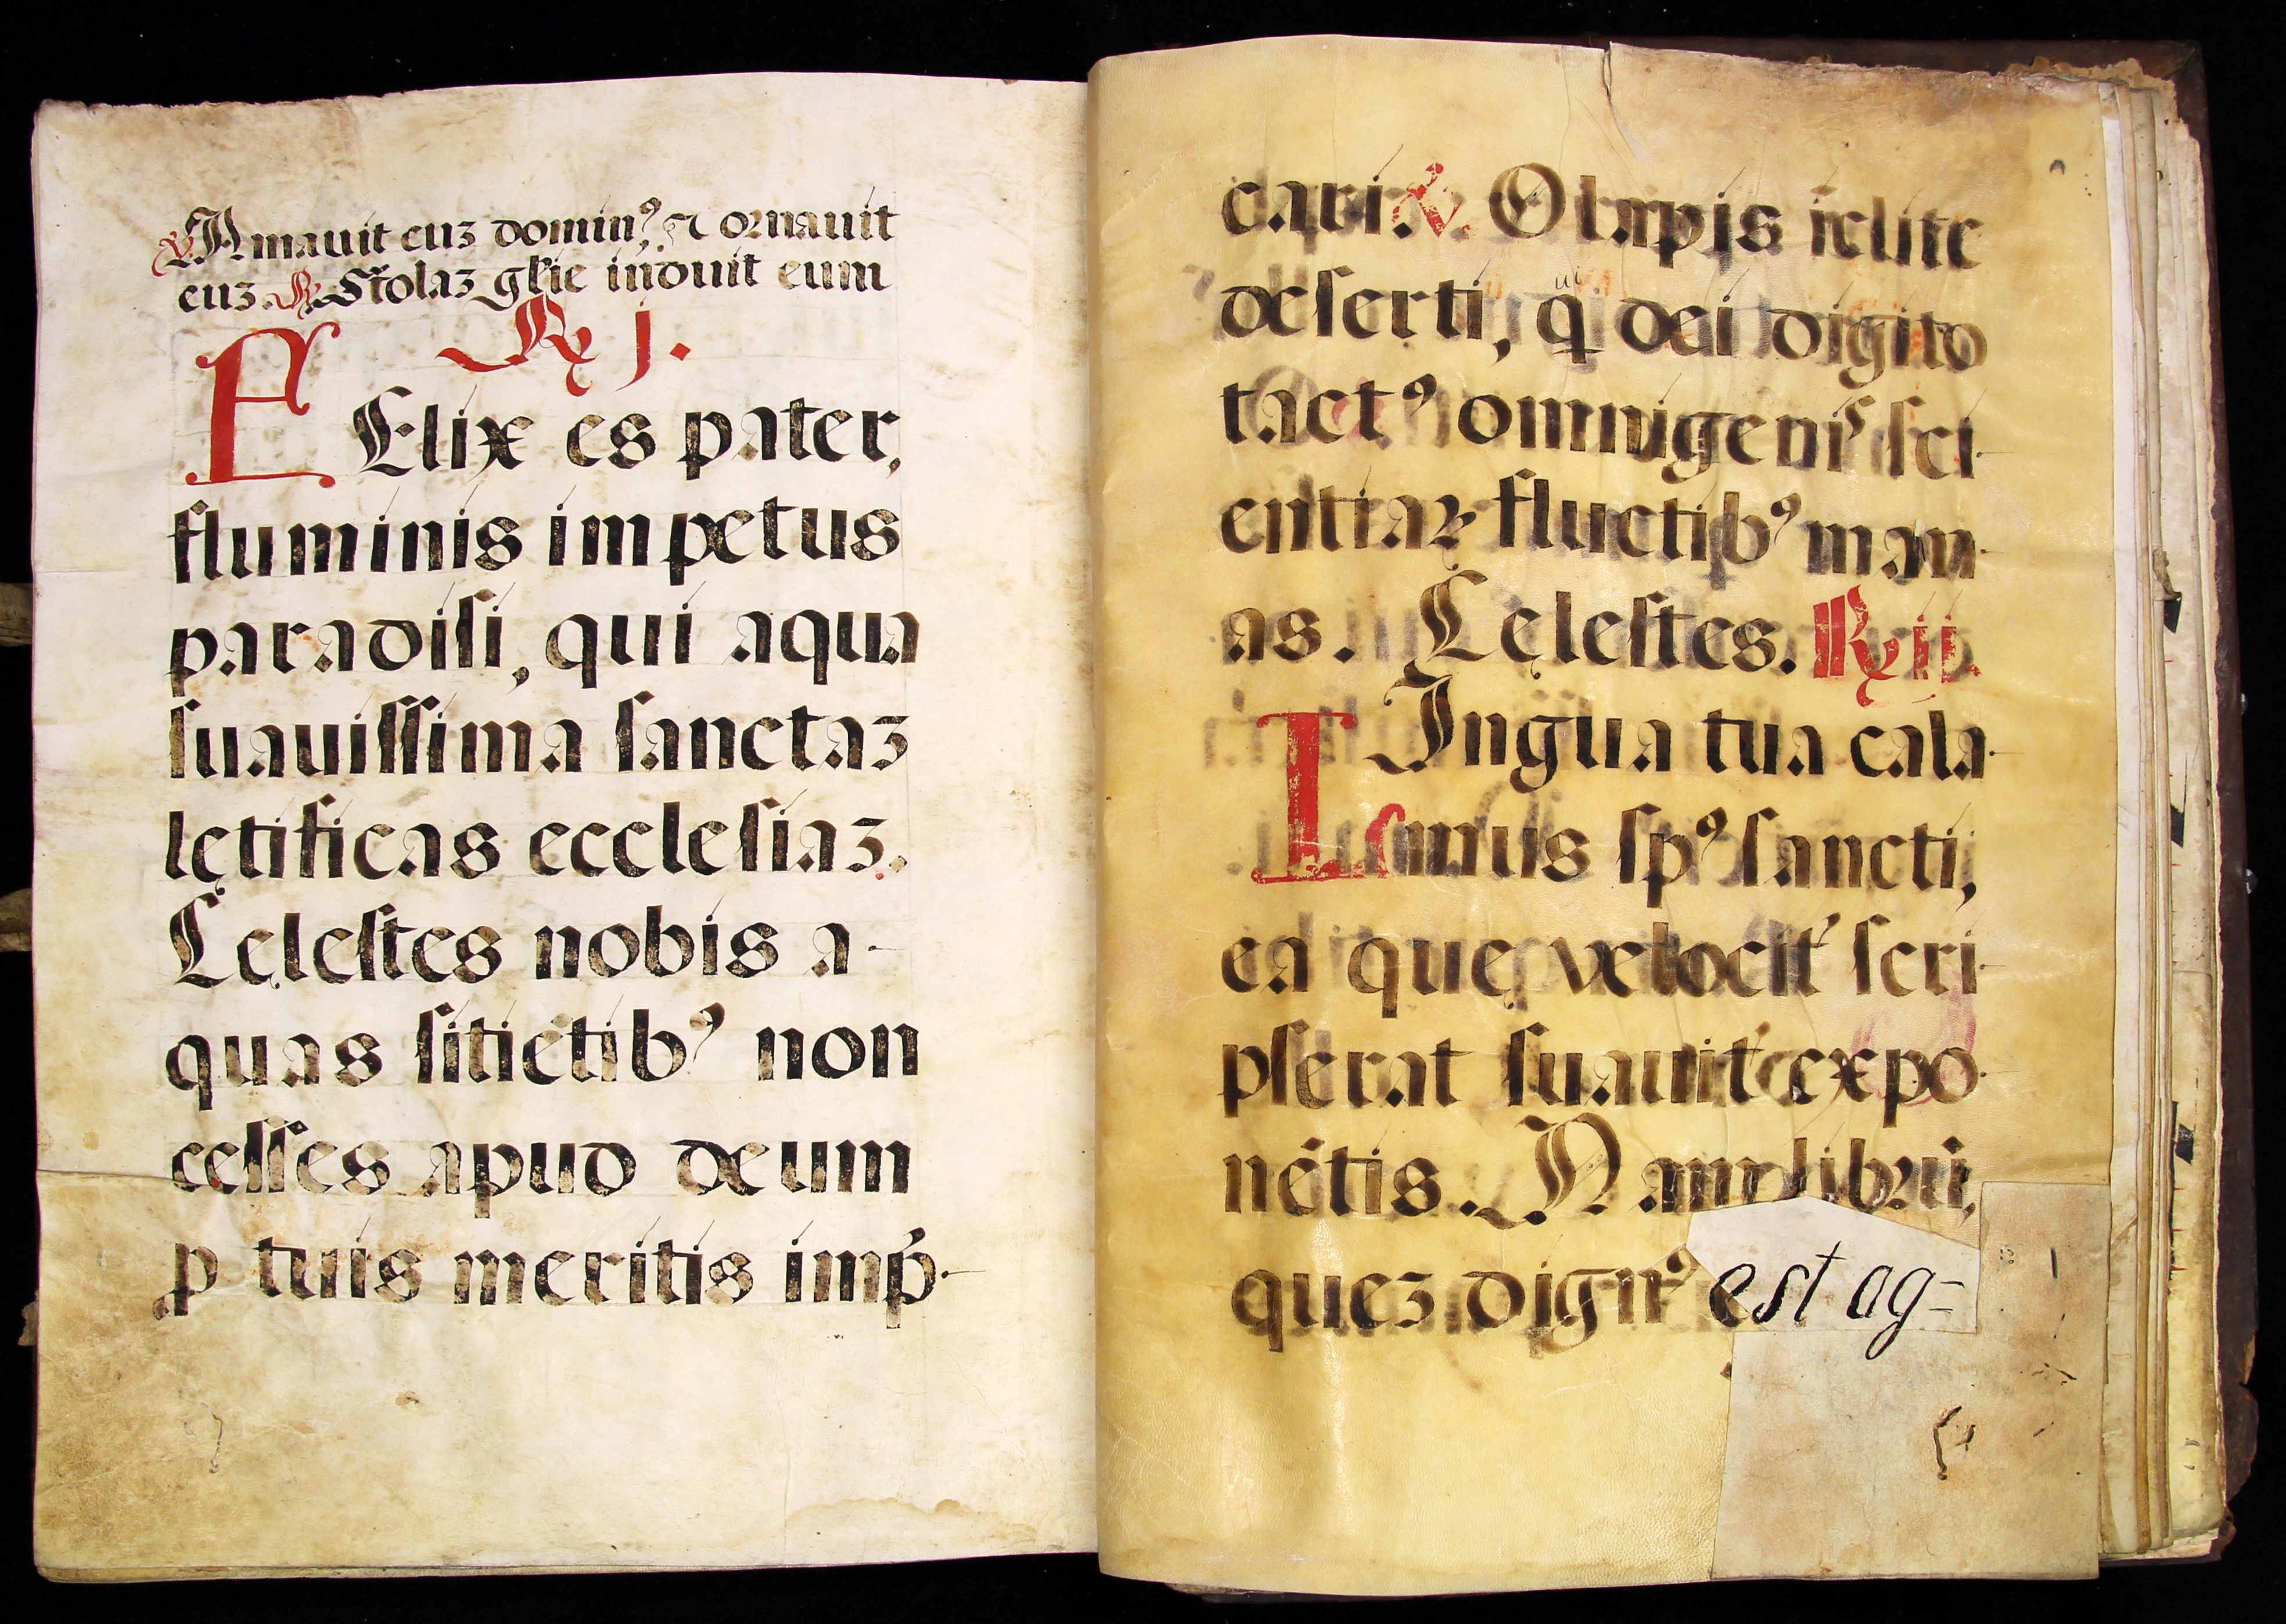 ℣ Amauit euꝫ dominꝰ, ⁊ ornauit
euꝫ. ℟. Stolaꝫ gl̃ie induit eum
℟ j.
FElix es pater,
fluminis impetus
paradiſi, qui aqua
ſuauiſſima ſanctaꝫ
lętificas eccleſiaꝫ.
Cęleſtes nobis a-
quas ſitiẽtibꝰ non
ceſſes apud deum
ꝓ tuis meritis imp̃-
cari. ℣. O lapis ĩclite
deſerti, q̃ui dei digito
tactꝰ omnigenis ſci-
entiaꝝ fluctibꝰ man-
as. Cęleſtes. ℟ ij.
LIngua tua cala-
mus ſpꝰ ſancti,
ea quę velocit̓ ſcri-
pſerat ſuauit̓ expo-
nẽtis. Nam librũ,
queꝫ dignꝰ est ag=